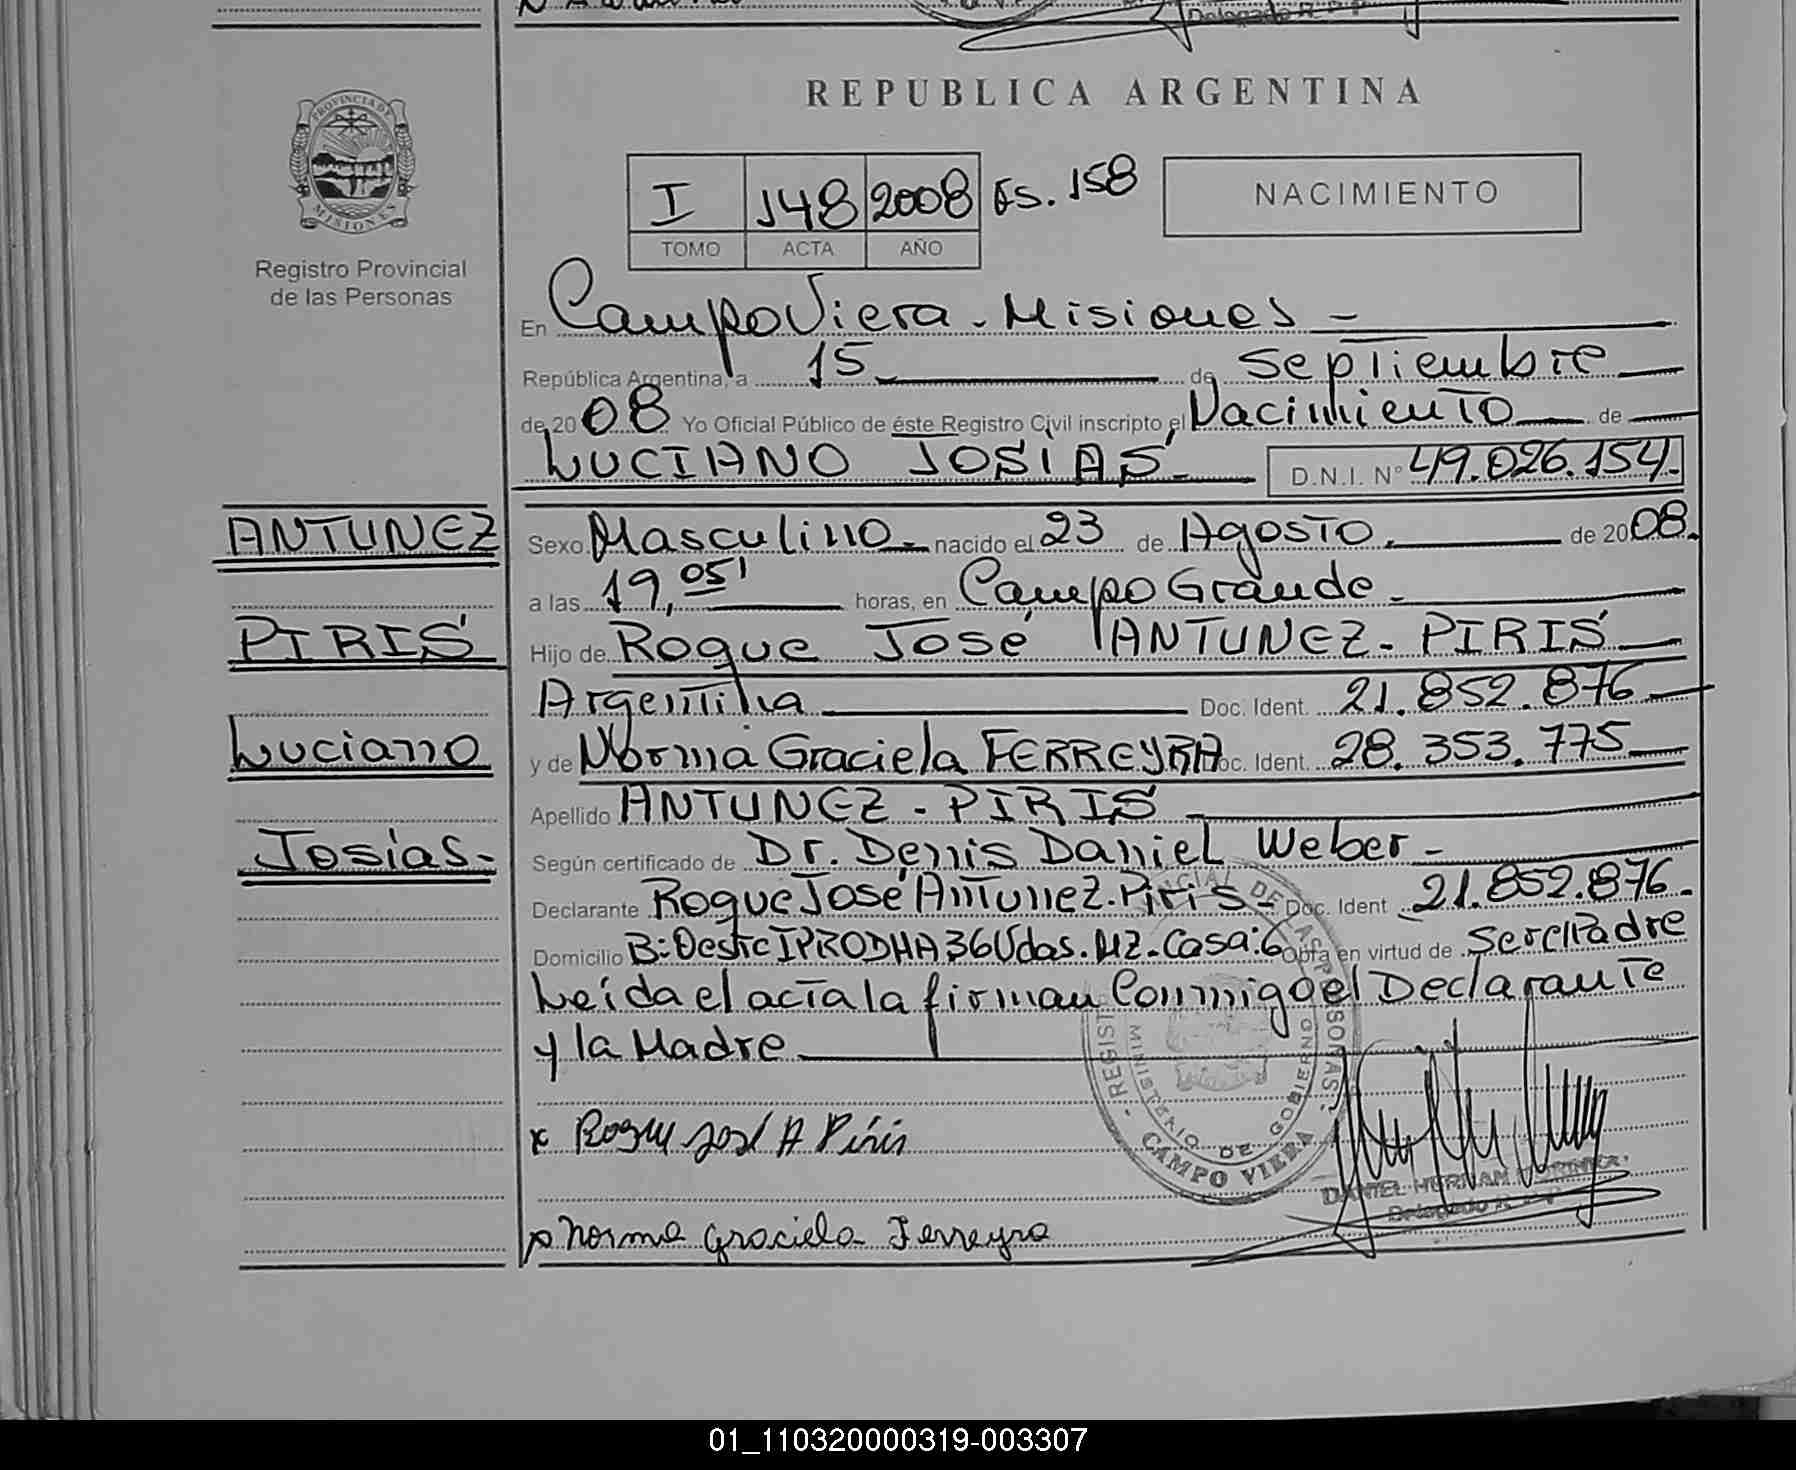 Delegado R. P. P.
REPUBLICA ARGENTINA
PROVINCIA DE MISIONES
Registro Provincial
de las Personas
I 148 2008 Fs. 158
TOMO ACTA AÑO
NACIMIENTO
En Campo Viera - Misiones -
República Argentina, a 15 de Septiembre
de 2008 Yo Oficial Público de éste Registro Civil inscripto el Nacimiento de
LUCIANO JOSÍAS - D.N.I. N° 49.026.154.
ANTUNEZ
PIRIS
Luciano
Josías -
Sexo Masculino - nacido el 23 de Agosto. de 2008.
a las 19,05' horas, en Campo Grande -
Hijo de Roque José ANTUNEZ - PIRIS
Argentina Doc. Ident. 21.852.876
y de Norma Graciela FERREYRA Doc. Ident. 28.353.775
Apellido ANTUNEZ - PIRIS
Según certificado de Dr. Denis Daniel Weber -
Declarante Roque José Antunez. Piris - Doc. Ident 21.852.876.
Domicilio B: Oeste IPRODHA 36 Vdas. MZ. Casa: 6 Obra en virtud de ser el Padre
Leída el acta la firman Conmigo el Declarante
y la Madre
x Roque José A Piris
x Norma Graciela Ferreyra
MINISTERIO DE GOBIERNO
CAMPO VIERA
DANIEL HERNAN
Delegado R. P. P.
01_110320000319-003307